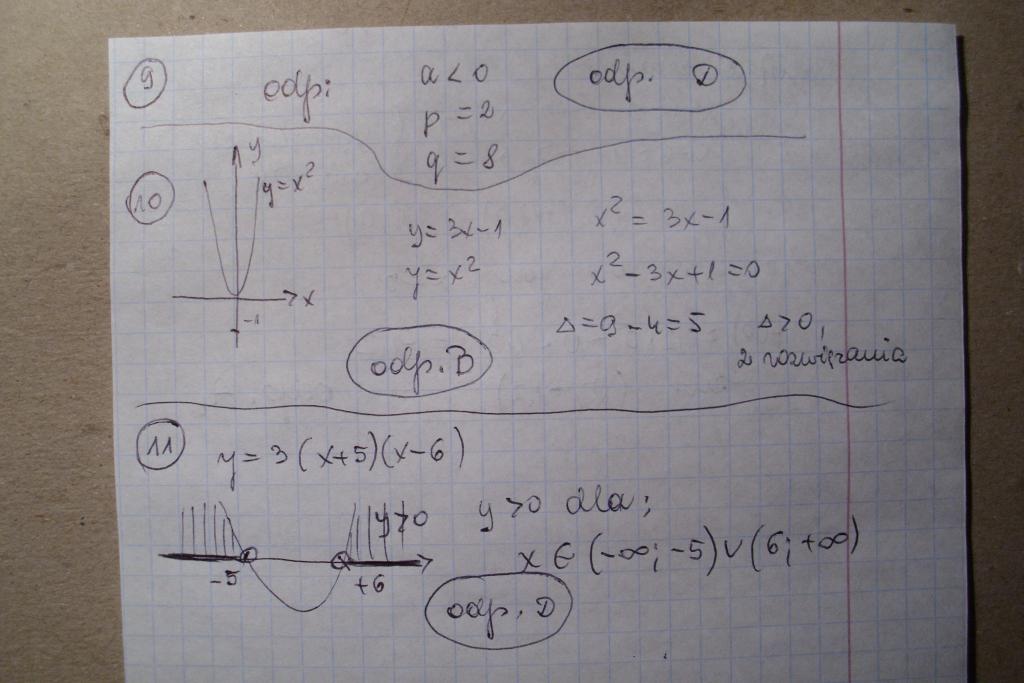 9 odp: a < 0 odp. D
p = 2
q = 8
10 y y=x²
x
-1
y = 3x-1
y = x²
x² = 3x-1
x² - 3x+1 = 0
Δ=9-4=5 Δ>0,
2 rozwiązania
odp. B
11 y = 3(x+5)(x-6)
y>0
-5 +6
y>0 dla;
x ∈ (-∞; -5) ∨ (6; +∞)
odp. D